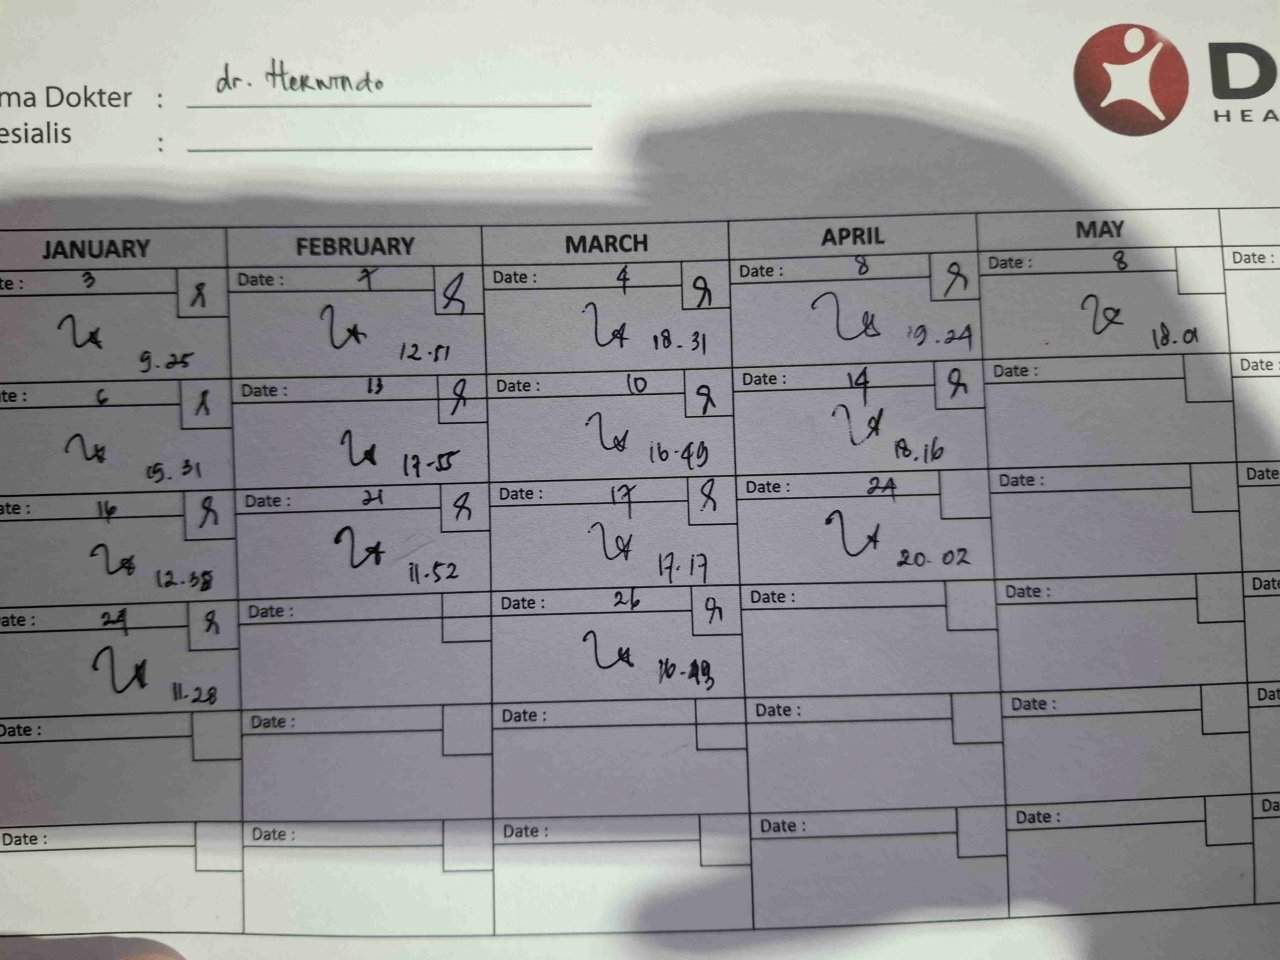 dr. Herwindo
ma Dokter :
esialis :
D
HEA
JANUARY FEBRUARY MARCH APRIL MAY
te : 3 Date : 7 Date : 4 Date : 8 Date : 8 Date :
9.25 12.51 18.31 19.24 18.01
te : 6 Date : 13 Date : 10 Date : 14 Date : Date :
15.31 17-55 16-49 18.16
ate : 16 Date : 21 Date : 17 Date : 24 Date : Date
12.38 11.52 17.17 20.02
ate : 24 Date : Date : 26 Date : Date : Date
11.28
Date : Date : Date : Date : Date : Dat
Date : Date : Date : Date : Date : Da